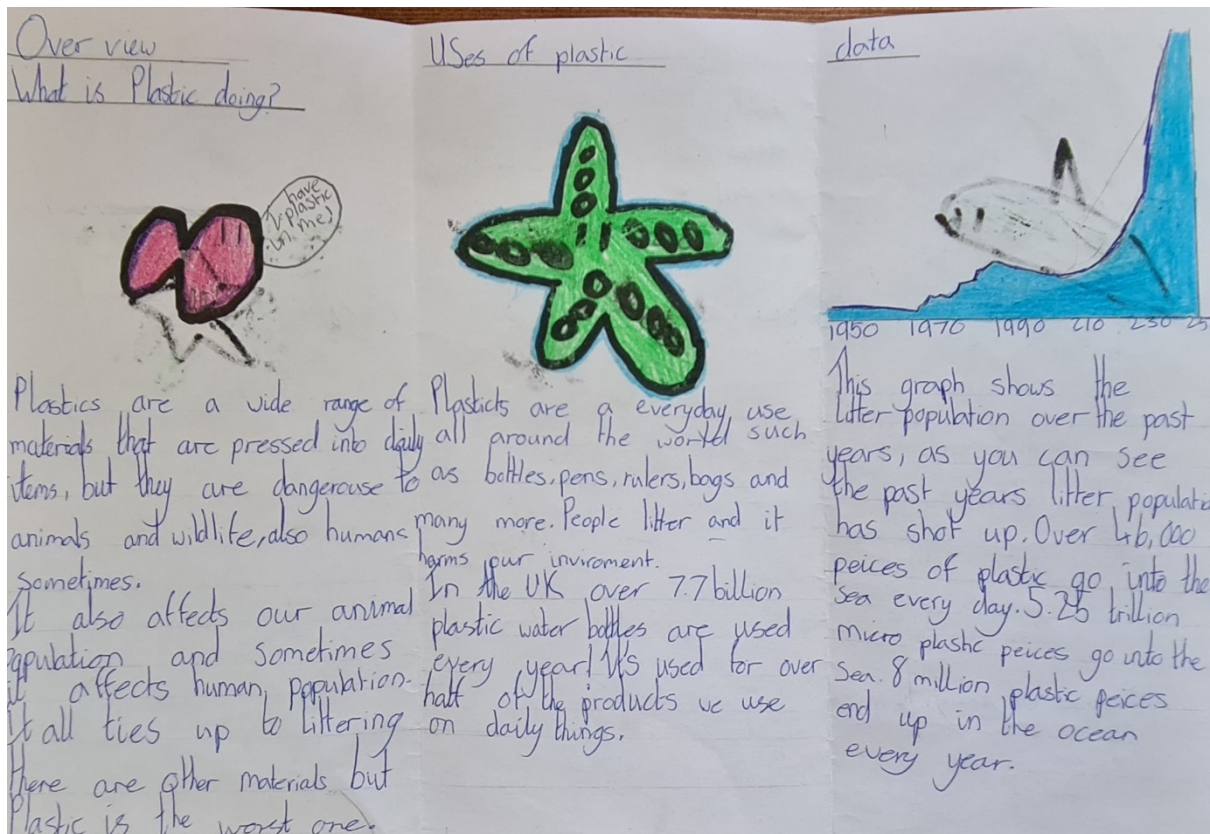 Over view
What is Plastic doing?
I have
plastic
in me!
Plastics are a wide range of
materials that are pressed into daily
items, but they are dangerouse to
animals and wildlife, also humans
sometimes.
It also affects our animal
population and sometimes
it affects human population.
It all ties up to littering
there are other materials but
Plastic is the worst one.
Uses of plastic
Plasticts are a everyday use
all around the world such
as bottles, pens, rulers, bags and
many more. People litter and it
harms our inviroment.
In the UK over 7.7 billion
plastic water bottles are used
every year! It's used for over
half of the products we use
on daily things.
data
1950 1970 1990 210 230 25
This graph shows the
litter population over the past
years, as you can see
the past years litter populatio
has shot up. Over 46,000
peices of plastic go into the
sea every day. 5.25 trillion
micro plastic peices go into the
sea. 8 million plastic peices
end up in the ocean
every year.